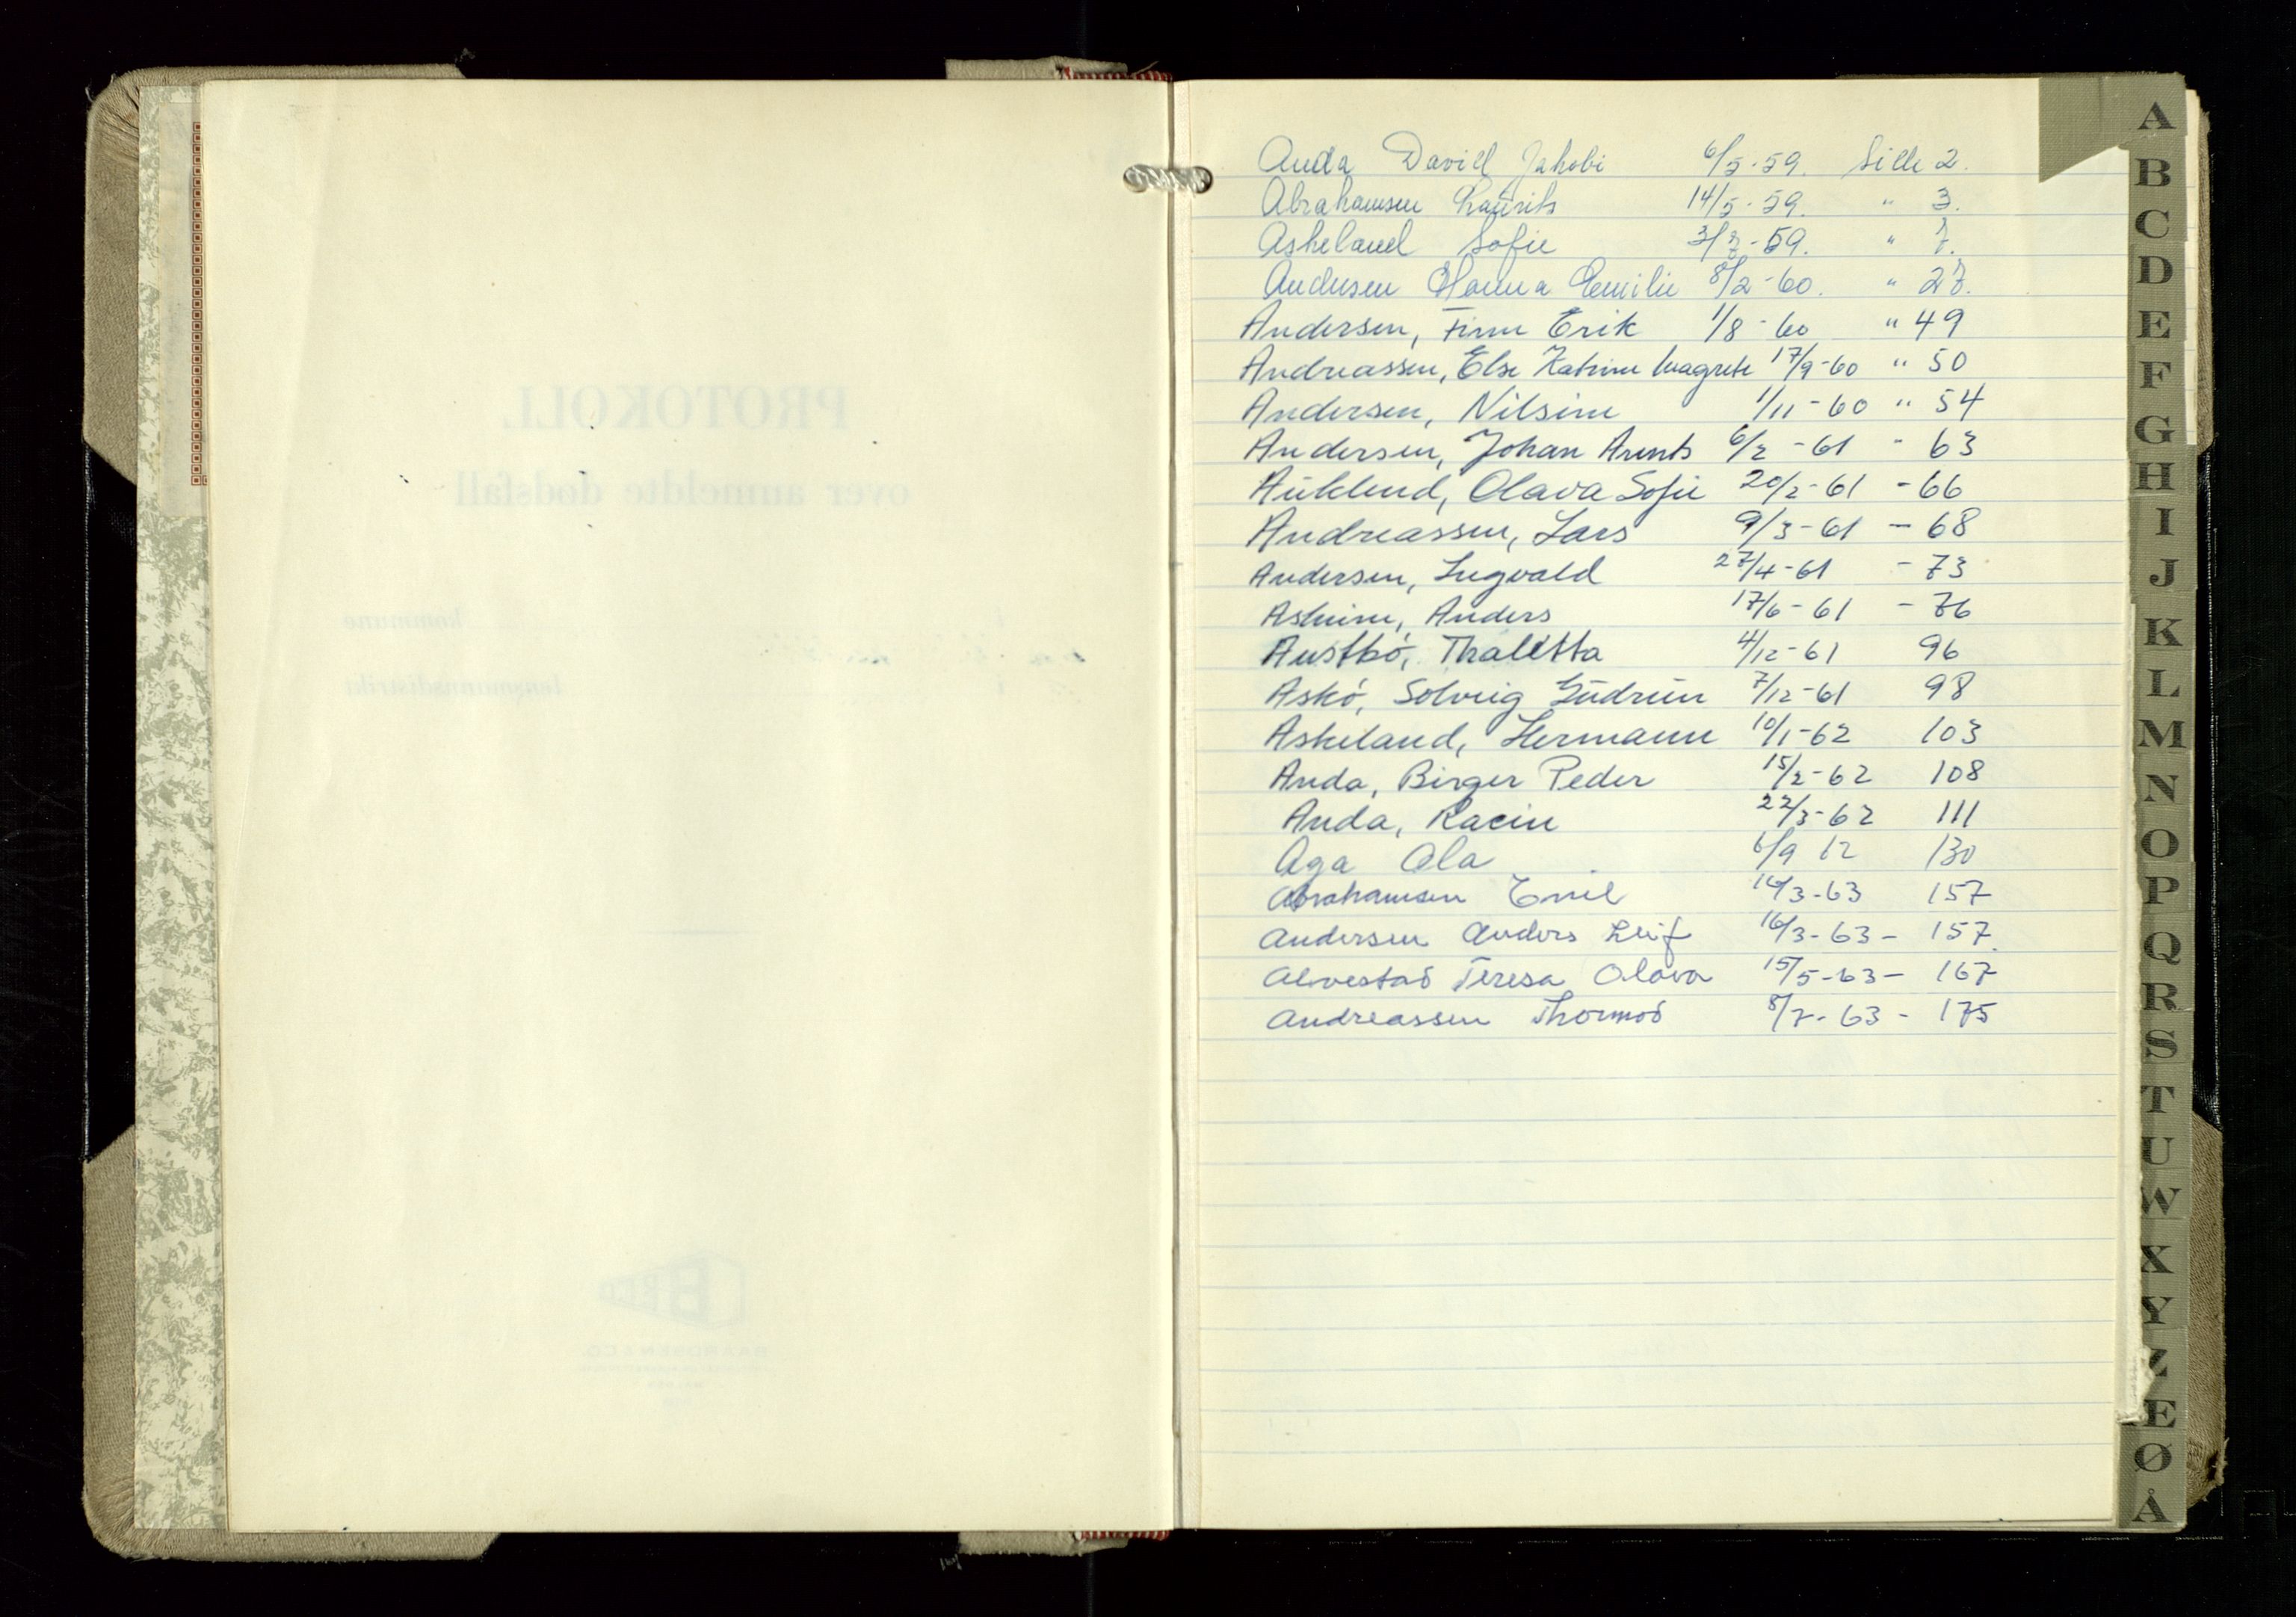 PROTOKOLL
over anmeldte dødsfall
i kommune
i lensmannsdistrikt
Anda David Jakobi 6/5-59. Side 2.
Abrahamsen Laurits 14/5-59. " 3.
Askeland Sofie 3/7-59. " 7.
Andersen Hanna Emilie 8/2-60. " 27.
Andersen, Finn Erik 1/8-60 " 49
Andreassen, Else Katrine Magrete 17/9-60 " 50
Andersen, Nilsine 1/11-60 " 54
Andersen, Johan Arents 6/2-61 " 63
Auklend, Olava Sofie 20/2-61 - 66
Andreassen, Lars 9/3-61 - 68
Andersen, Ingvald 27/4-61 - 73
Asheim, Anders 17/6-61 - 76
Austbø, Thalitta 4/12-61 96
Askø, Solveig Gudrun 7/12-61 98
Askeland, Hermann 10/1-62 103
Anda, Birger Peder 15/2-62 108
Anda, Racin 22/3-62 111
Aga Ola 6/9 62 130
Abrahamsen Emil 16/3-63 157
Andersen Anders Leif 16/3-63- 157.
Alvestad Teresa Olava 15/5-63- 167
Andreassen Thormod 8/7-63- 175
A
B
C
D
E
F
G
H
I
J
K
L
M
N
O
P
Q
R
S
T
U
W
X
Y
Z
Æ
Ø
Å